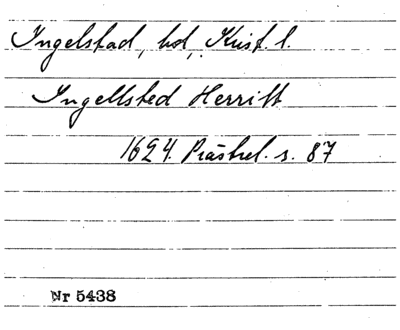 Ingelstad, hd, Krist. l.
Ingellsted Herritt
1624. Prästrel. s. 87
Nr 5438